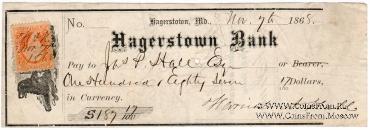 No. Hagerstown, Md., Nov. 7th 1868.
Hagerstown Bank
Pay to Jas P Hall Esq or Bearer,
One Hundred & Eighty Seven 17 Dollars,
in Currency.
$187 17/100
www.CoinsFromMoscow.ru